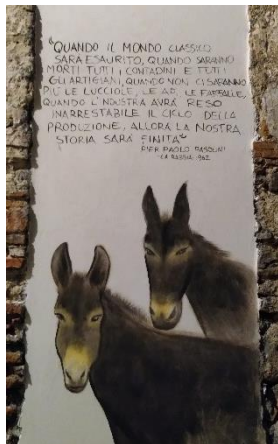 "QUANDO IL MONDO CLASSICO
SARÀ ESAURITO, QUANDO SARANNO
MORTI TUTTI I CONTADINI E TUTTI
GLI ARTIGIANI, QUANDO NON CI SARANNO
PIÙ LE LUCCIOLE, LE API, LE FARFALLE,
QUANDO L'INDUSTRIA AVRÀ RESO
INARRESTABILE IL CICLO DELLA
PRODUZIONE, ALLORA LA NOSTRA
STORIA SARÀ FINITA"
PIER PAOLO PASOLINI
"LA RABBIA" 1962